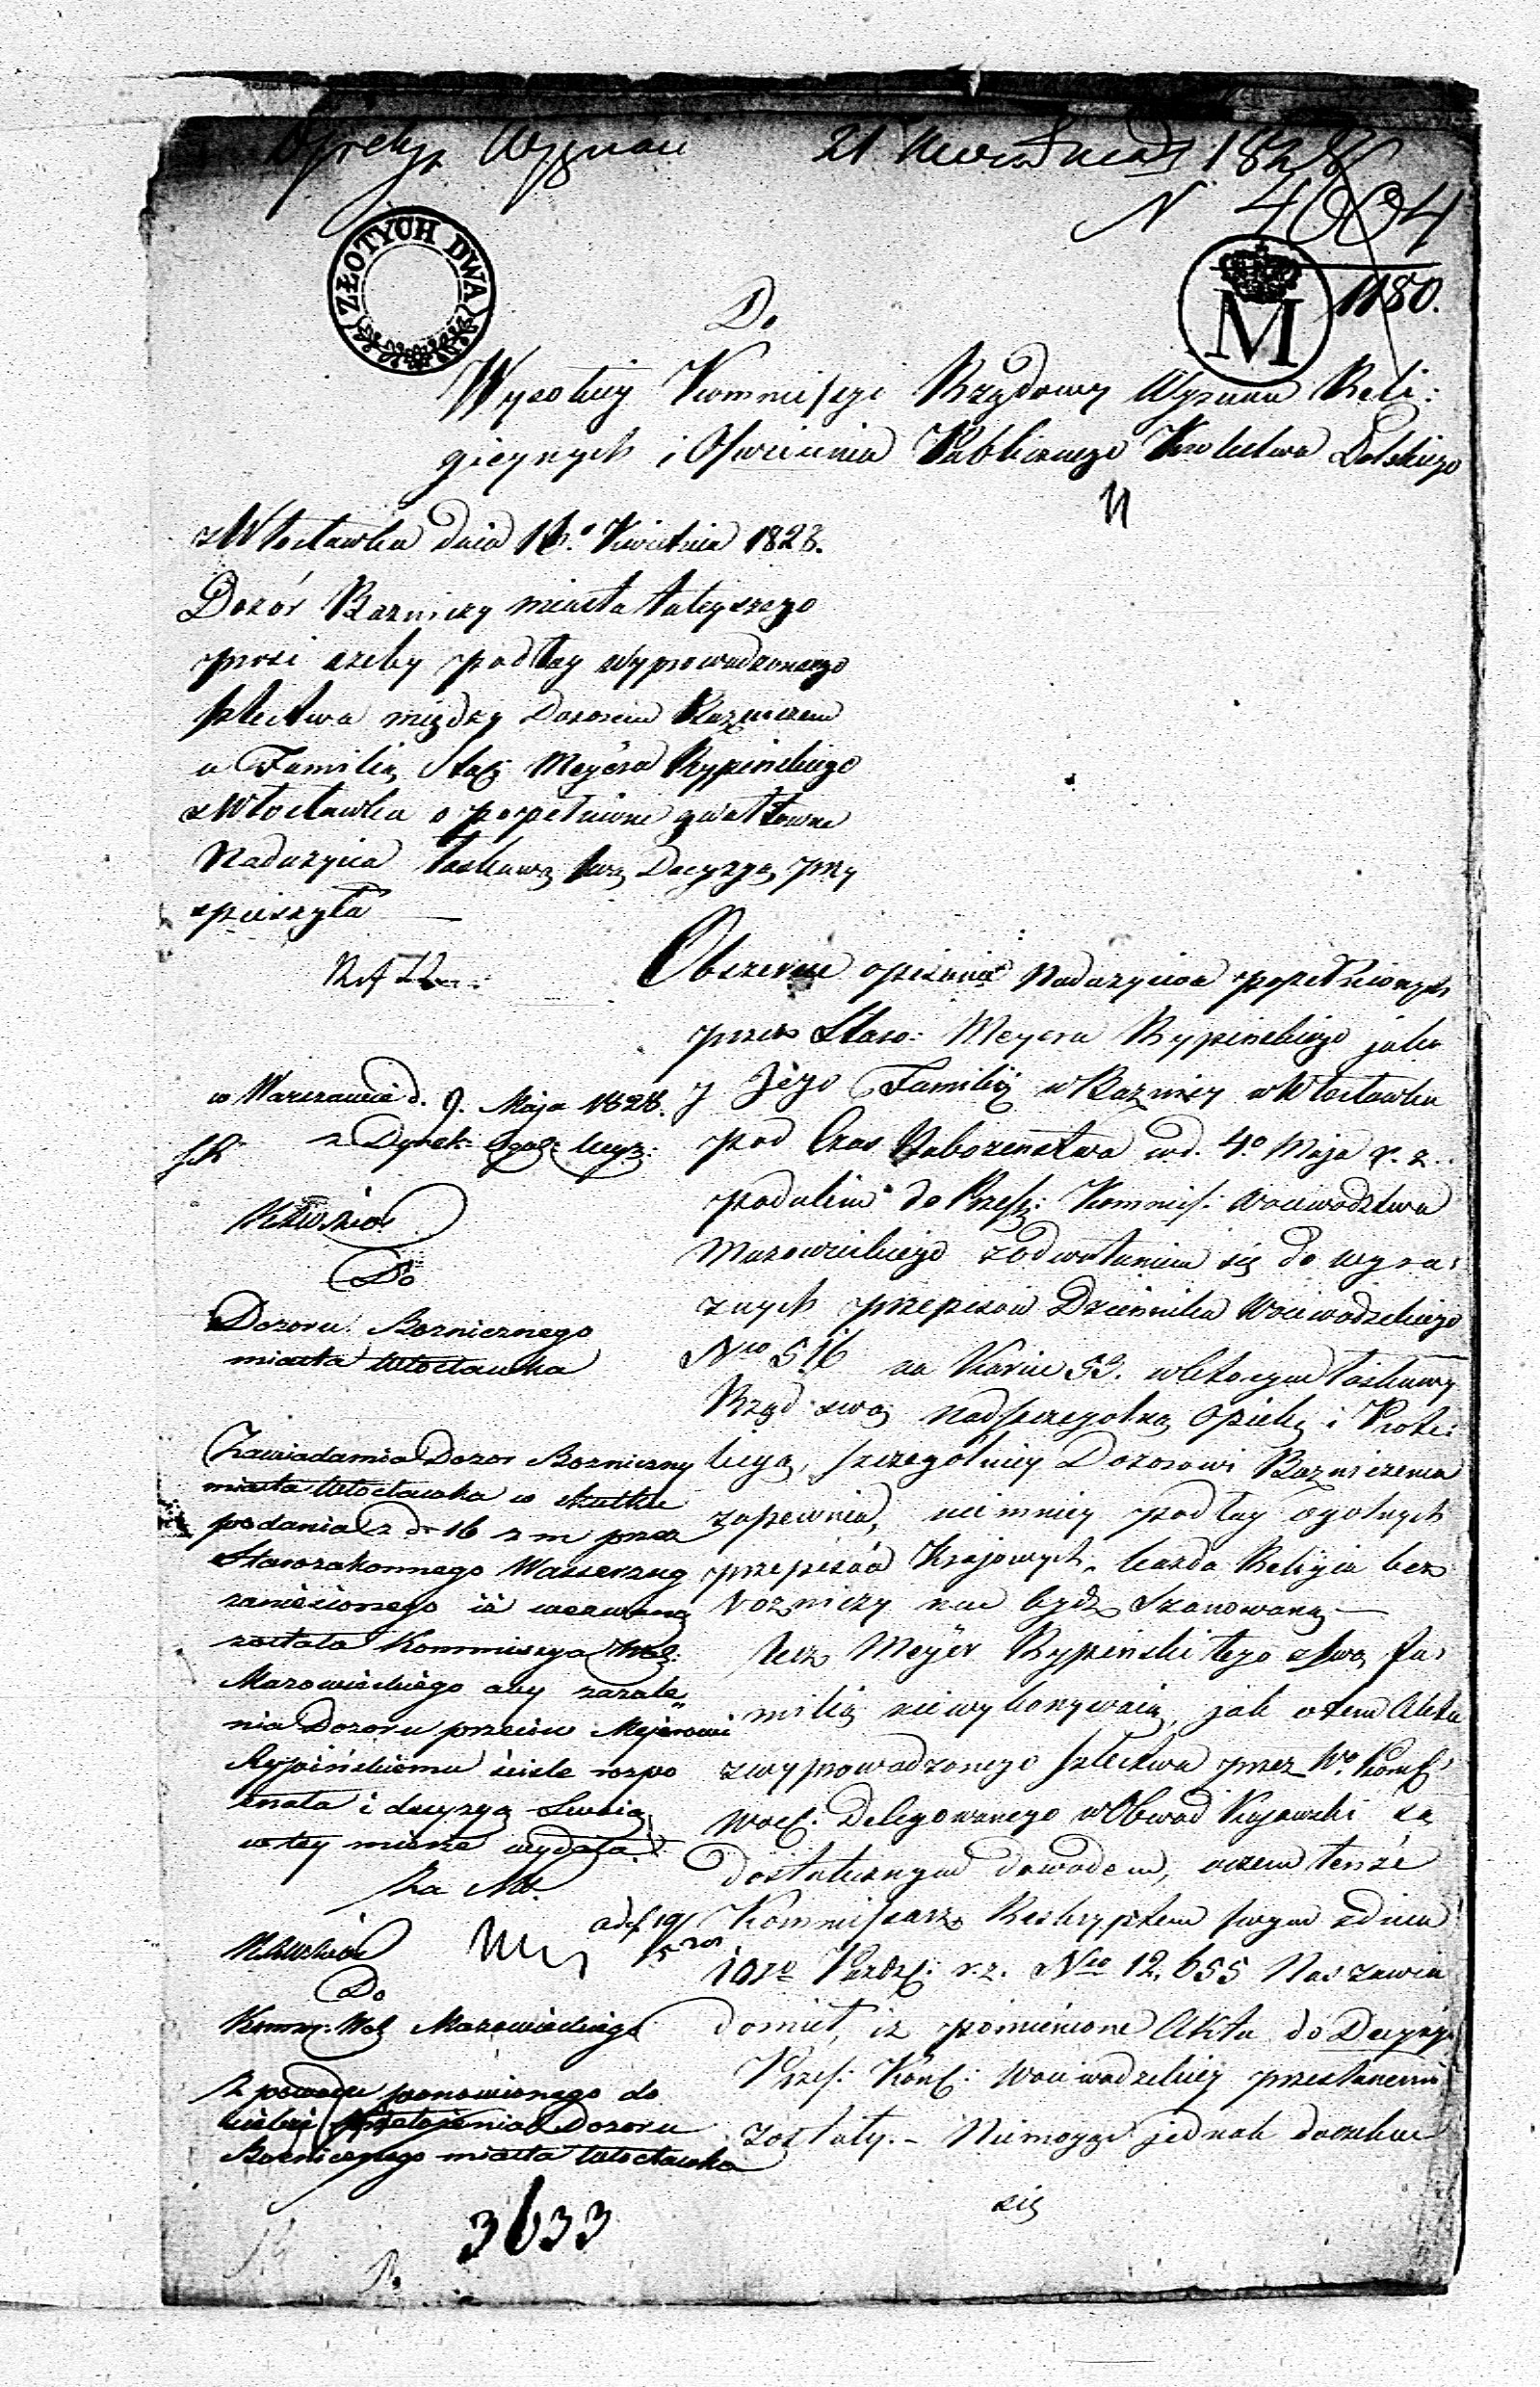 21 Kwietnia 1828
N 4004
1180.
ZŁOTYCH DWA
M
Do
Wysokiey Kommissyi Rządowey Wyznań Reli:
gieynych i Oświecenia Publicznego Krolestwa Polskiego
z Włocławka dnia 16.° Kwietnia 1828.
Dozór Bozniczy miasta tuteyszego
prosi azeby podług wyprowadzonego
sledztwa między Dozorem Bozniczem
a Familią Star: Meyera Rypinskiego
z Włocławka o popełnione gwałtowne
Nadużycia łaskawą swą Decyzyą przy
spieszyła —
Obszerne opisanie Nadużyciow popełnionych
przez Staro: Meyera Rypinskiego jako
y Jego Familią w Boznicy w Włocławku
pod Czas Nabozenstwa w d. 4° Maja r. z.
podaliśm do Prześ: Kommis: Woiewodztwa
Mazowieckiego z odwołaniem się do wyra:
znych przepisow Dziennika Woiewodzkiego
Nro 516 na Karcie 53. w ktorym łaskawy
Rząd swą nadszczegolną Opiekę i Prote:
kcyą, szczegolniey Dozorowi Bozniczemu
zapewnia, nie mniey podług ogolnych
przepisów Krajowych, kazda Religia bez
roznicy ma bydz Szanowaną —
lecz Meyer Rypinski tego z swą Fa:
milią niewykonywaią, jak o tem Akta
z wyprowadzonego sledztwa przez Wo Komś:
Woiś: Delegowanego w Obwod Kujawski są
dostatecznym dowodem, o czem tenże
Kommissarz Reskryptem swym z dnia
10go Pazdź: r. z. Nro 12,655 Nas zawia
domił, iz pomienione Akta do Decyzyi
Prześ: Komś: Woiewodzkiey przesłanemi
zostały. – Niemogąc jednak doczekać
się
w Warszawie d. 9. Maja 1828.
Do
Dozoru Bozniczego
miasta Włocławka
Zawiadamia Dozor Bozniczny
miasta Włocławka w skutku
podania z d. 16 z m przez
Starozakonnego Wasserzug
zaniesionego iż wezwaną
została Kommissya Woj:
Mazowieckiego aby zażale„
nia Dozoru przeciw Mejerowi
Rypińskiemu ściśle rozpo
znała i decyzyą Swoią
w tey mierze wydała.
Do
Kommis. Woj. Mazowieckiego
Z powodu ponowionego do
siebie przełożenia Dozoru
Bozniczego miasta Włocławka
3633